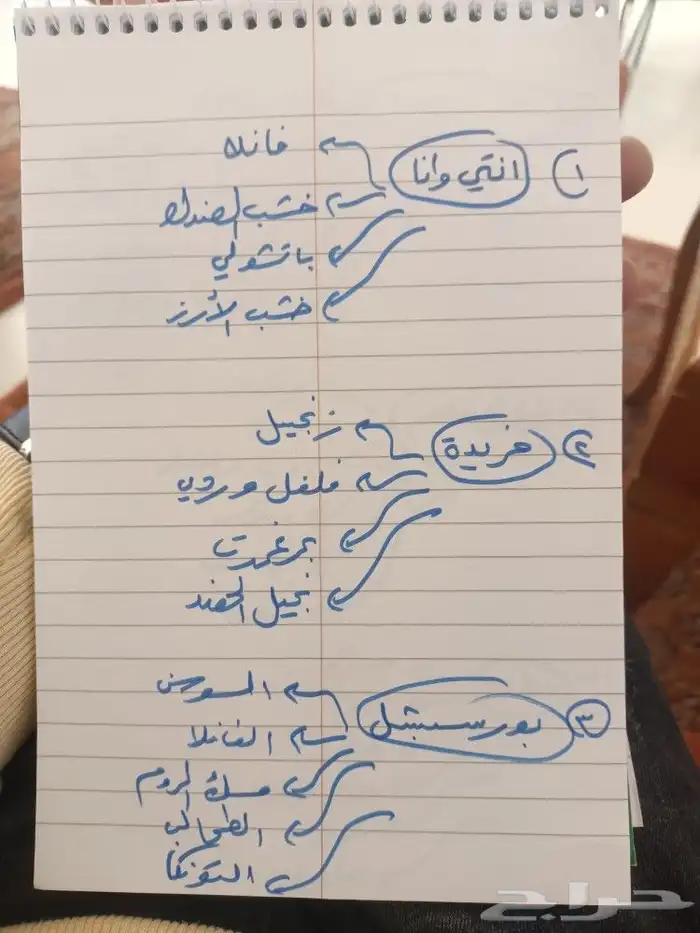 ١) انتي وانا
فانلا
خشب الصندل
باتشولي
خشب الأرز
٢) فريدة
زنجبيل
فلفل وردي
برغموت
نجيل الهند
٣ بور سبشل
السوسن
الفانلا
مسك الروم
التونكا
حراج